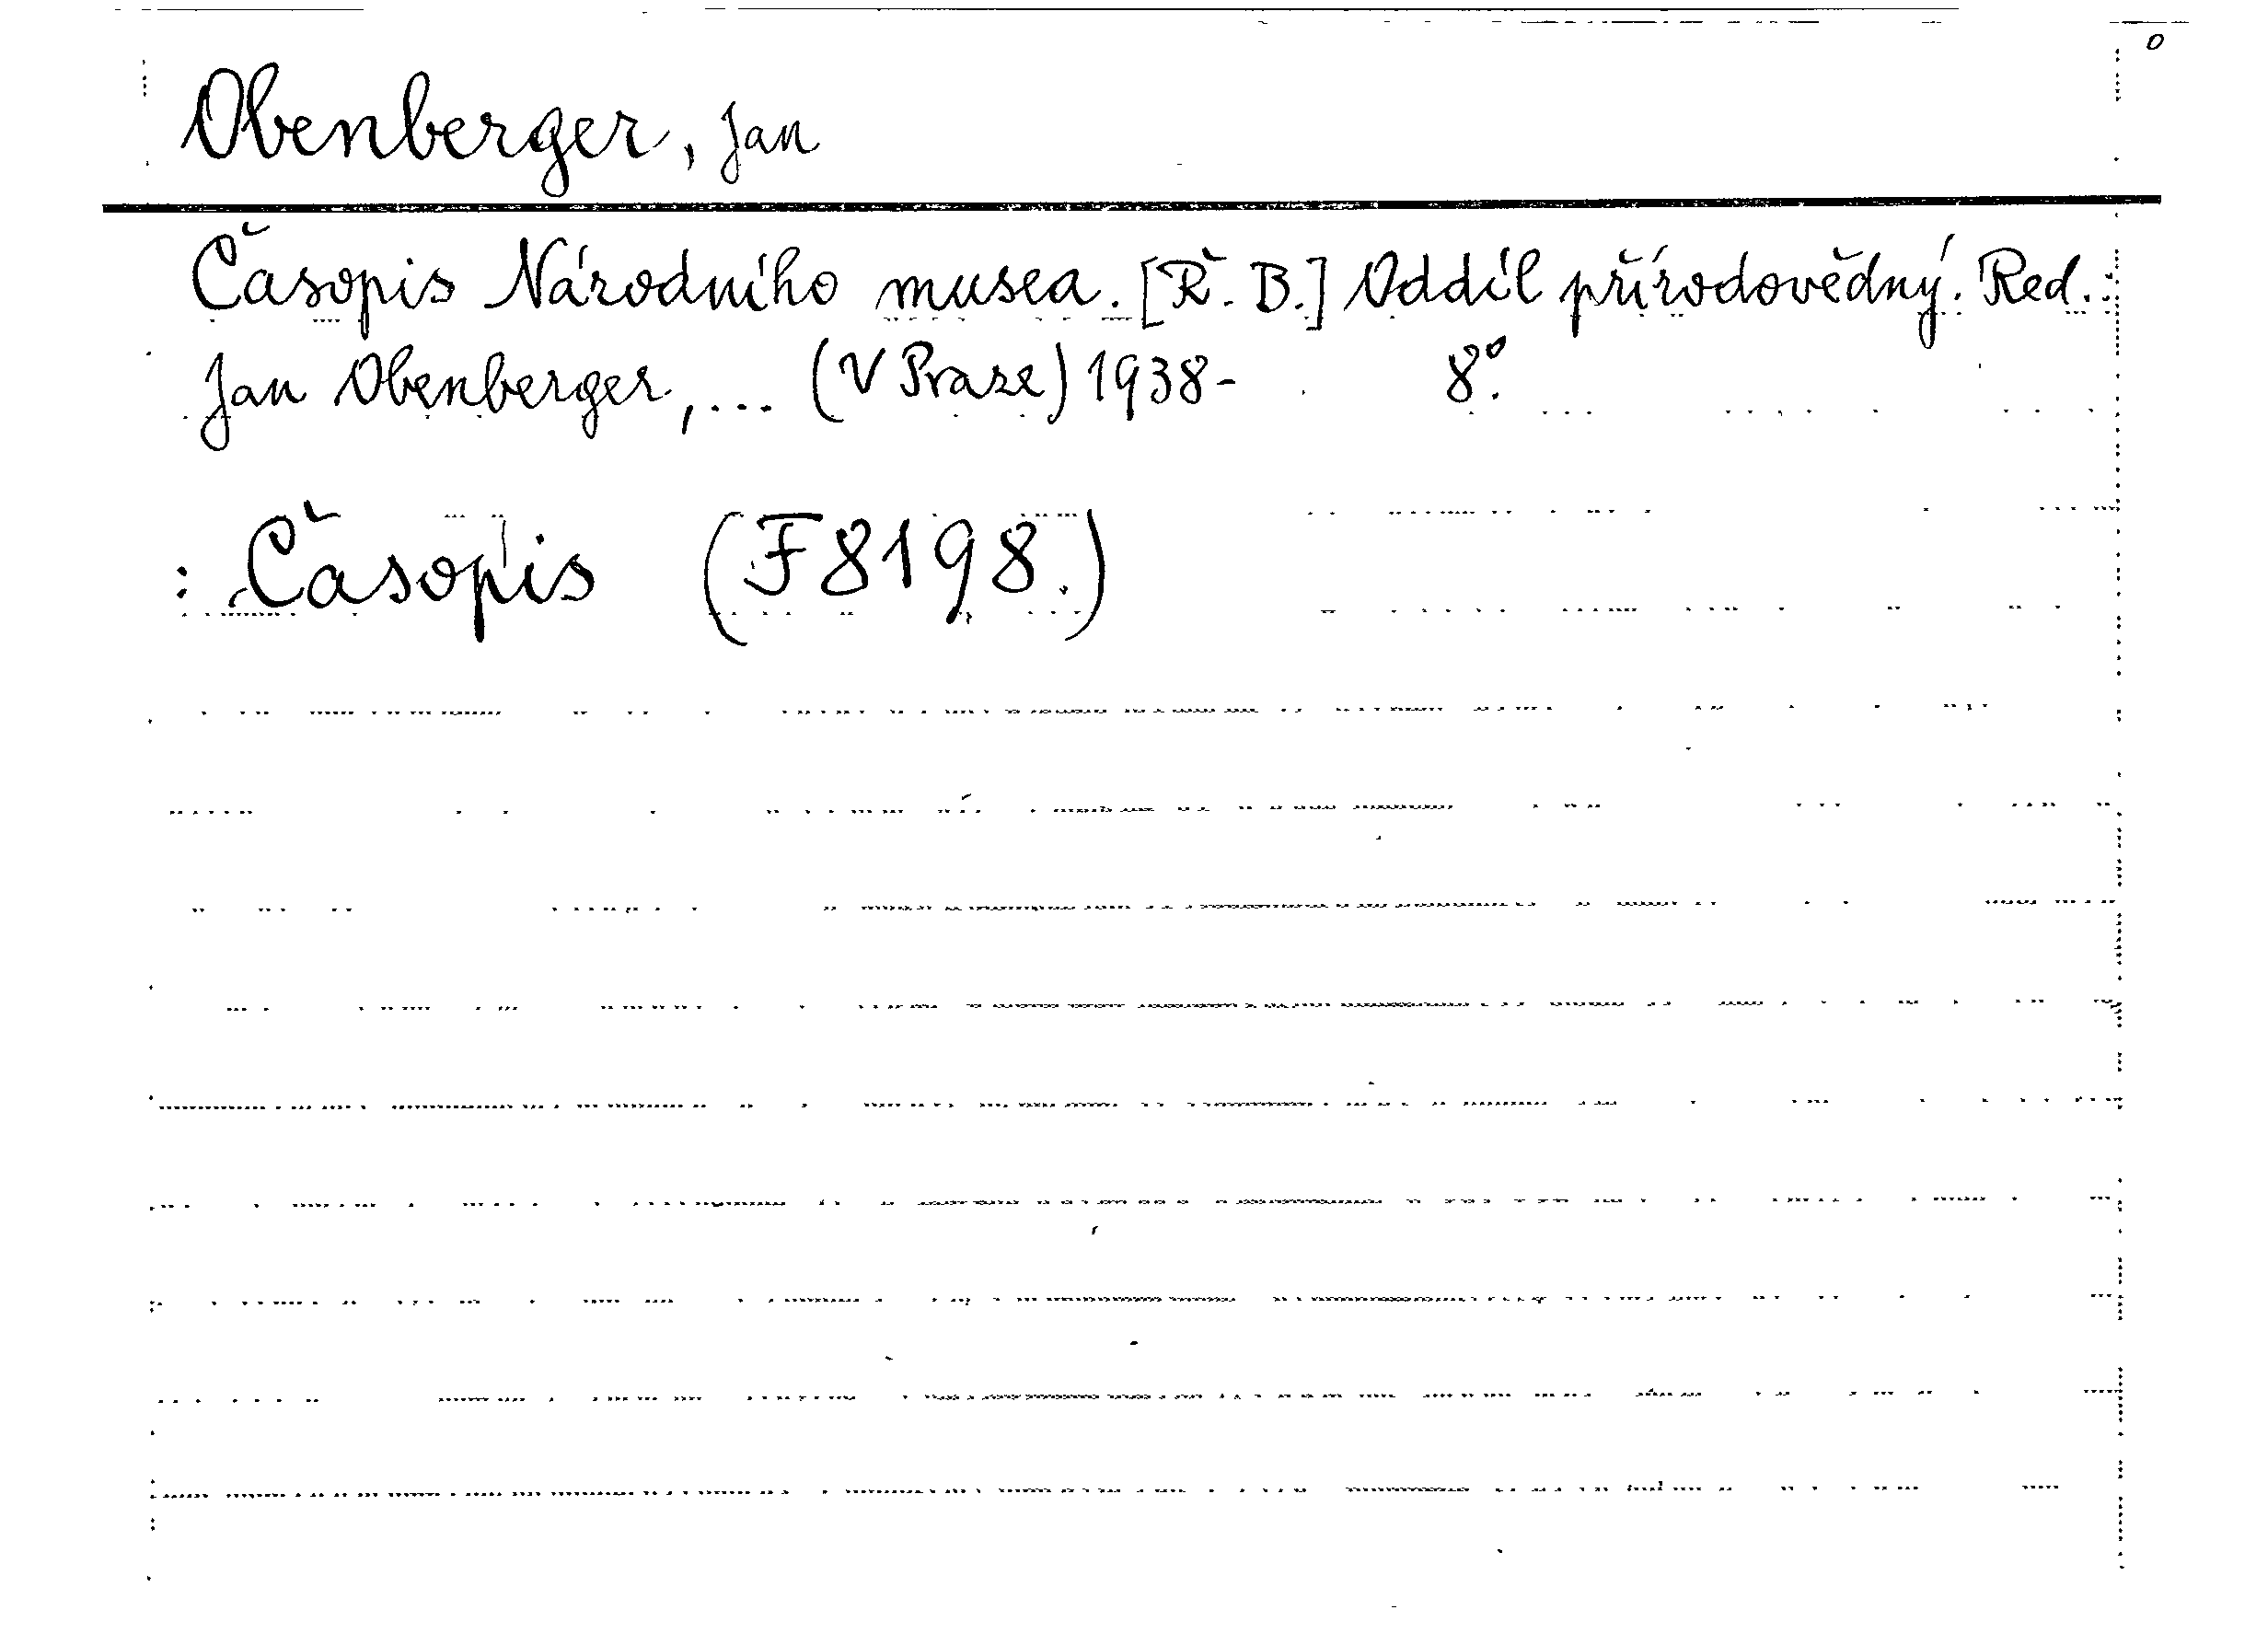 Obenberger, Jan
Časopis Národního musea. [Ř. B.] Oddíl přírodovědný. Red.:
Jan Obenberger,... (V Praze) 1938- 8°.
: Časopis (F 8198.)